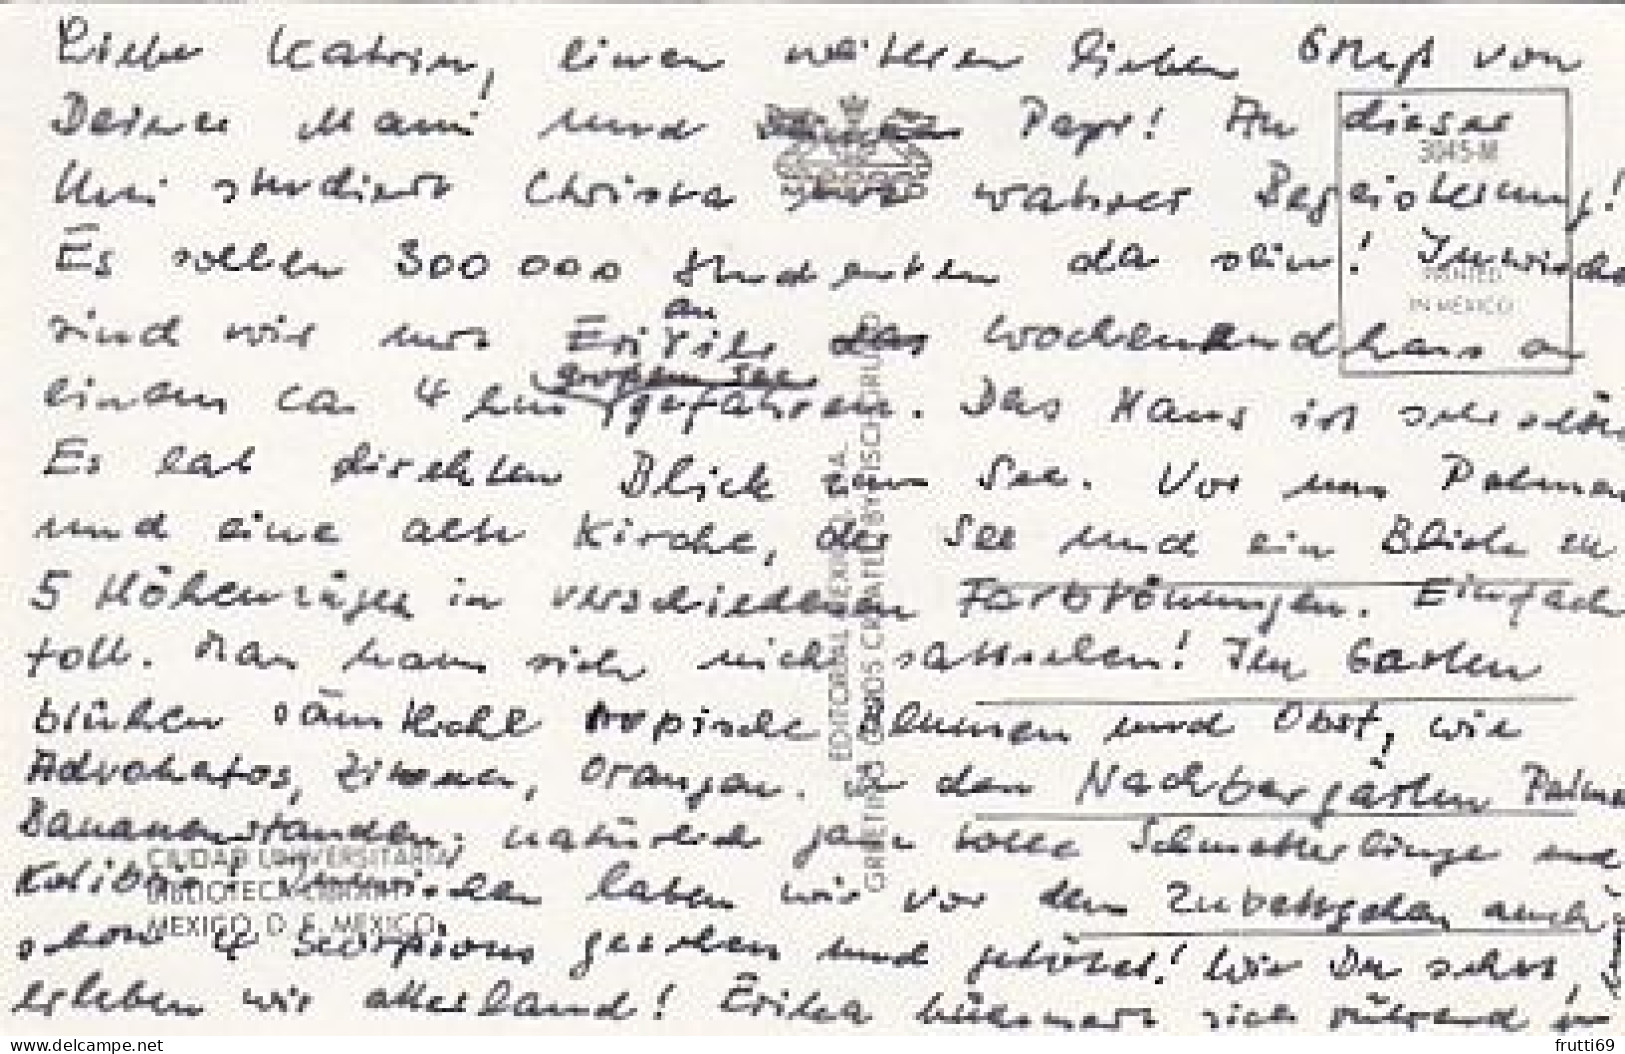 Liebe Katrin, einen weiteren lieben Gruß von
Deiner Mami und Papi! An dieser
Uni studiert Christa mit wahrer Begeisterung!
Es sollen 300 000 Studenten da sein! Inzwische
sind wir mit Erika ins Wochenendhaus an
einem ca 4 km großen See gefahren. Das Haus ist sehr schön
Es hat direkten Blick zum See. Vor uns Palmen
und eine alte Kirche, der See und ein Blick zu
5 Höhenzügen in verschiedenen Farbtönungen. Einfach
toll. Man kann sich nicht sattsehen! Im Garten
blühen sämtliche tropische Blumen und Obst, wie
Advokatos, Zitronen, Orangen. In den Nachbargärten Palme
Bananenstauden, natürlich ganz tolle Schmetterlinge und
Kolibris. Inzwischen haben wir vor dem Zubettgehen auch
schon 4 Scorpions gesehen und getötet! Wie Du siehst,
erleben wir allerhand! Erika kümmert sich rührend
3045-M
PRINTED
IN MEXICO
MEXICO
EDITORIAL MEXICO, S.A.
CIUDAD UNIVERSITARIA
BIBLIOTECA-LIBRARY
MEXICO, D. F. MEXICO.
delcampe.net
frutti69